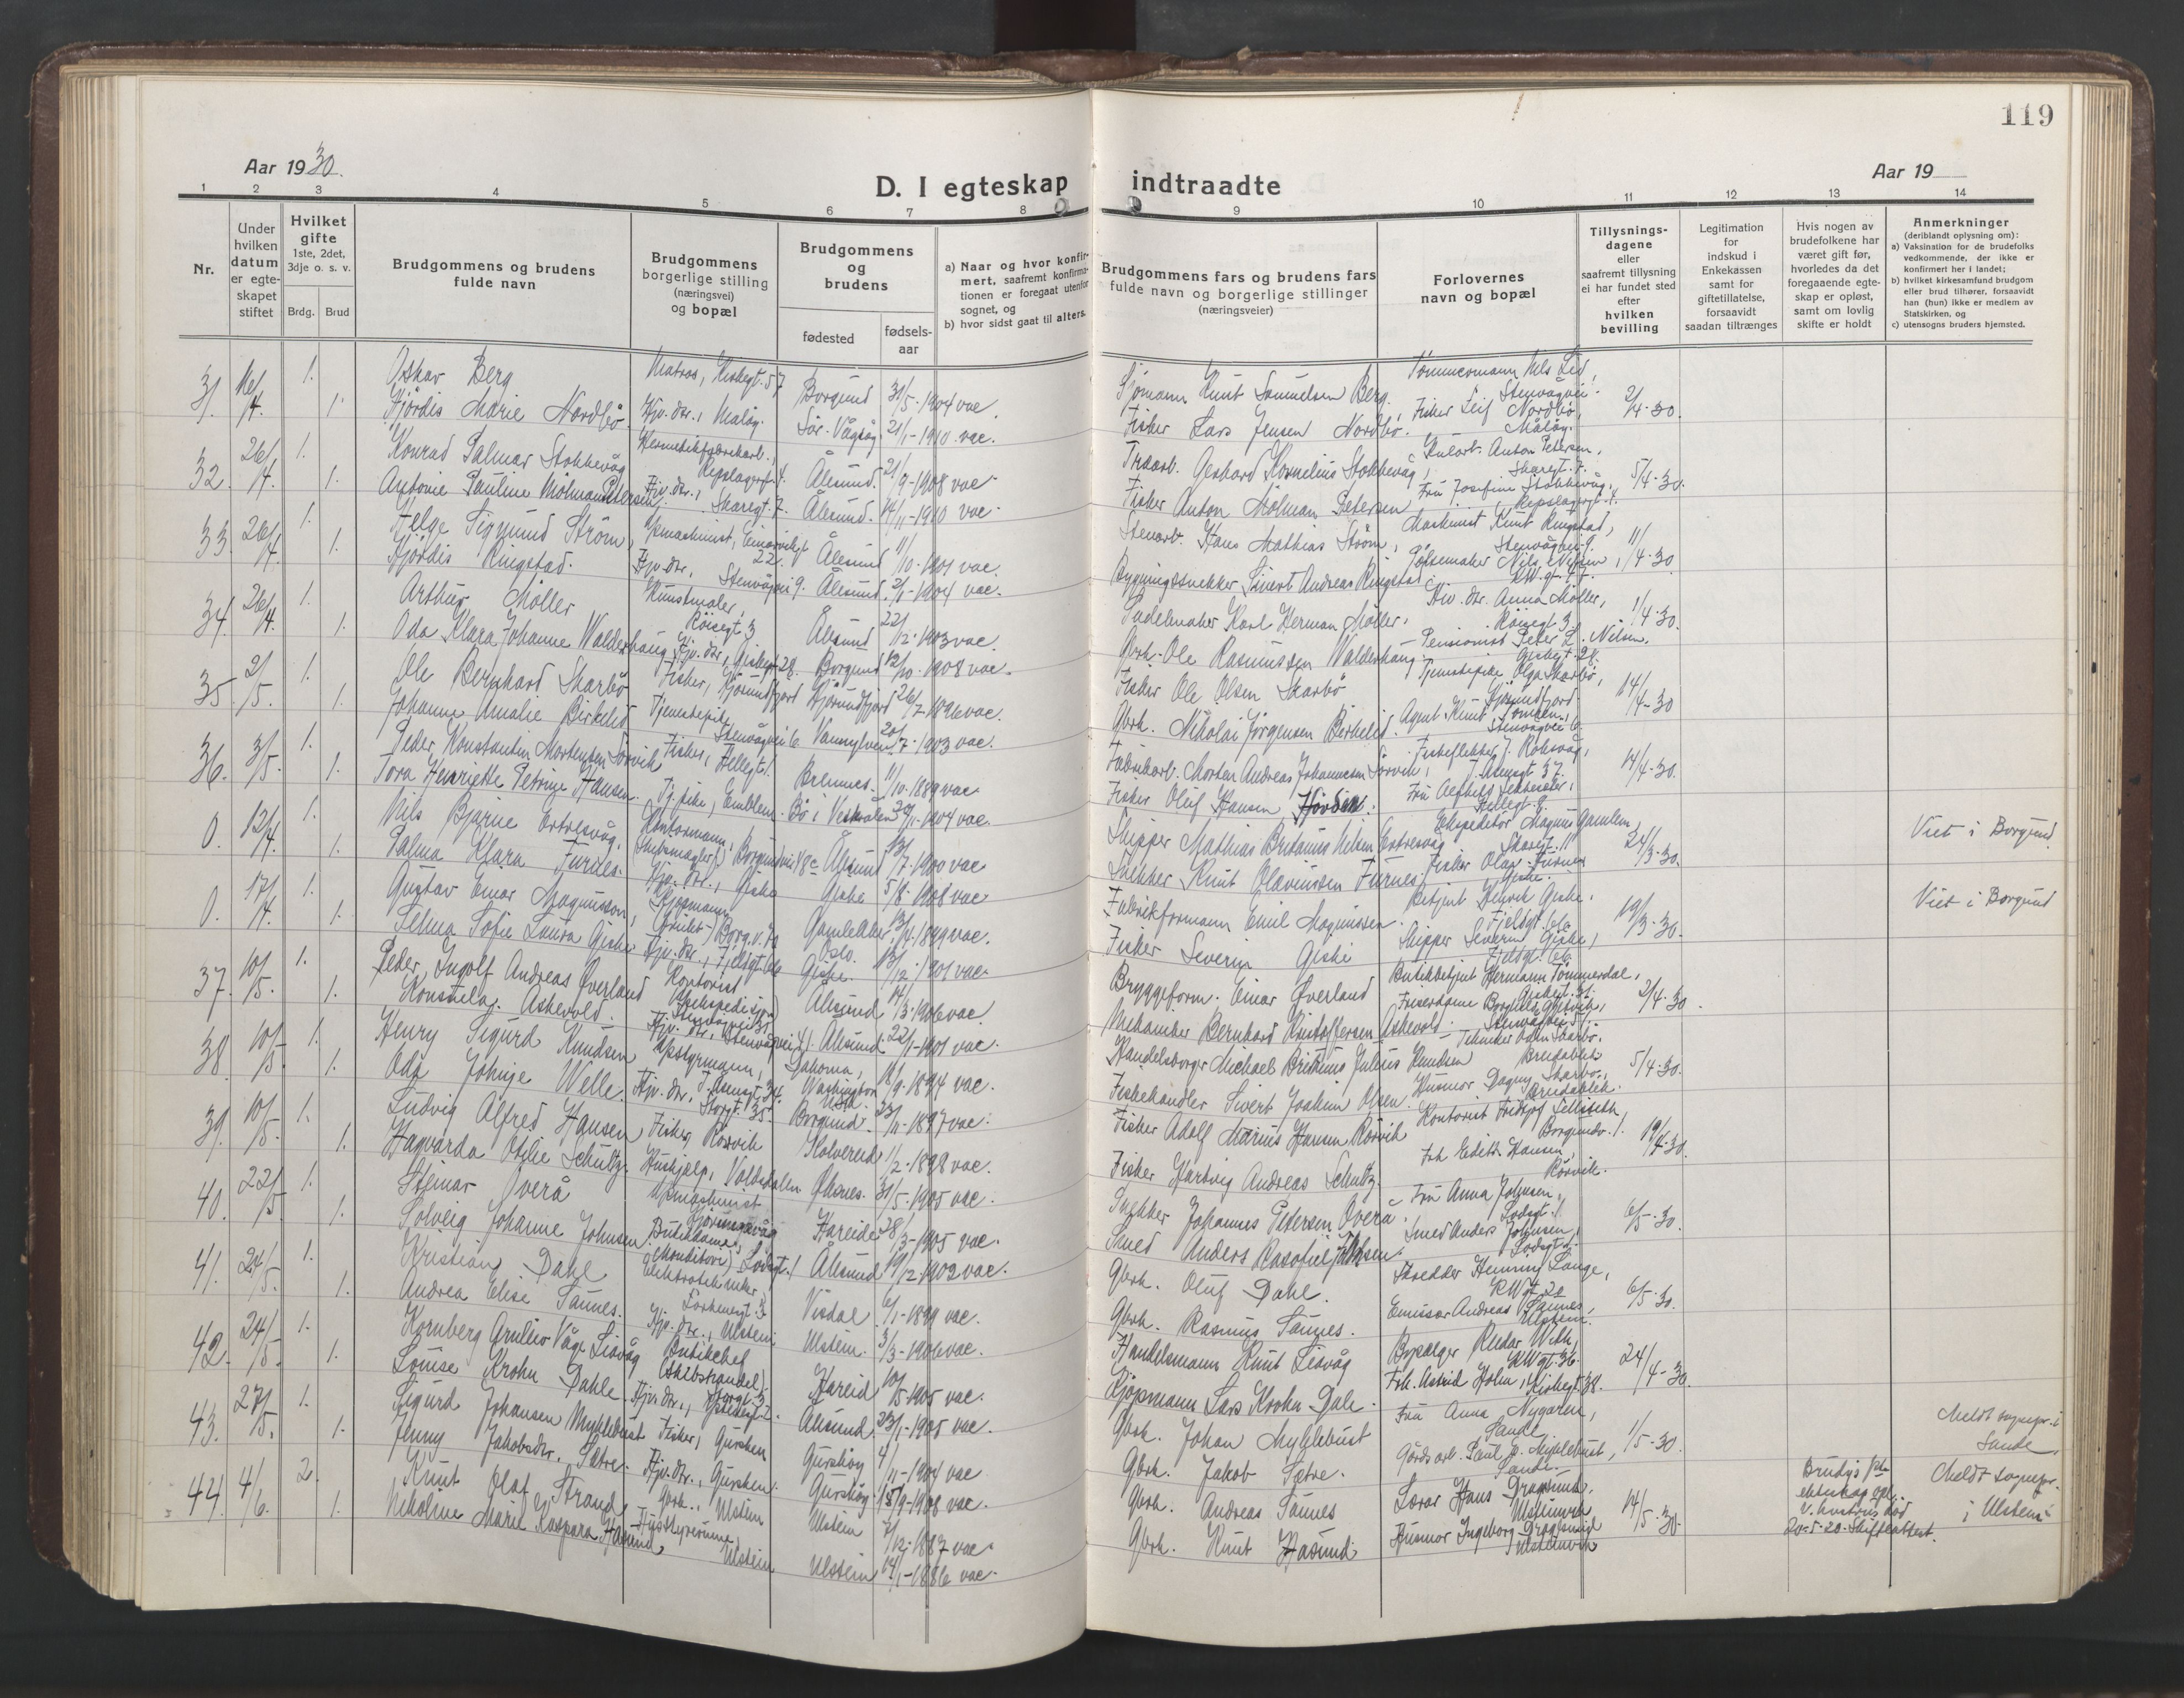 119
Aar 1930.
Aar 19
D. I egteskap indtraadte
1 2 3 4 5 6 7 8 9 10 11 12 13 14
Nr.
Under hvilken datum er egteskapet stiftet
Hvilket gifte 1ste, 2det, 3dje o. s. v.
Brdg. Brud
Brudgommens og brudens fulde navn
Brudgommens borgerlige stilling (næringsvei) og bopæl
Brudgommens og brudens
fødested
fødselsaar
a) Naar og hvor konfirmert, saafremt konfirmationen er foregaat utenfor sognet, og
b) hvor sidst gaat til alters.
Brudgommens fars og brudens fars fulde navn og borgerlige stillinger (næringsveier)
Forlovernes navn og bopæl
Tillysningsdagene eller saafremt tillysning ei har fundet sted efter hvilken bevilling
Legitimation for indskud i Enkekassen samt for giftetillatelse, forsaavidt saadan tiltrænges
Hvis nogen av brudefolkene har været gift før, hvorledes da det foregaaende egteskap er opløst, samt om lovlig skifte er holdt
Anmerkninger (deriblandt oplysning om):
a) Vaksination for de brudefolks vedkommende, der ikke er konfirmert her i landet;
b) hvilket kirkesamfund brudgom eller brud tilhører, forsaavidt han (hun) ikke er medlem av Statskirken, og
c) utensogns bruders hjemsted.
31. 16/4. 1. Oskar Berg Matros, Kirkegt. 57 Borgund 31/5-1904 vac. Sjömann Knut Samuelsen Berg. Tömmermann Nils Lid, Stenvågvei 2/4-30.
1. Hjördis Marie Nordbö Hjv. dtr., Måløy. Sör-Vågsöy 21/1-1910 vac. Fisker Lars Jensen Nordbö. Fisker Leif Nordbö, Måløy.
32. 26/4. 1. Konrad Palmar Stokkevåg Hermetikfabrikarb., Repslagergt. 4. Ålesund 21/9-1908 vac. Træarb. Gerhard Kornelius Stokkevåg, Kularb. Anton Petersen, Skaregt. 7. 5/4-30.
1. Antonie Pauline Molman Petersen Hjv. dtr., Skaregt. 7. Ålesund. 14/11-1910 vac. Fisker Anton Molman Petersen Fru Josefine Stokkevåg, Repslagergt. 4.
33. 26/4. 1. Helge Sigmund Ström, Einarvikgt 22. Ålesund 11/10-1901 vac. Stenarb. Hans Mathias Ström, Maskinist Knut Ringstad, Stenvågvei 9. 11/4-30
1. Hjördis Ringstad. Hjv. dtr., Stenvågvei 9. Ålesund. 2/1-1904 vac. Bygningssnekker Sivert Andreas Ringstad Pölsemaker Nils Nilsen, KW. gt. 47.
34. 26/4. 1. Arthur Möller Kunstmaler, Röisegt 3 Ålesund 22/12-1903 vac. Sadelmaker Karl Herman Möller. Hjv. dtr. Anna Möller, Röisegt 3. 11/4-30.
1. Oda Klara Johanne Walderhaug Hjv. dtr., Giskegt 28. Borgund 12/10-1908 vac. Gbrk. Ole Rasmussen Walderhaug Pensionist Peter L. Nilsen, Giskegt. 28.
35. 2/5. 1. Ole Bernhard Skarbö Fisker, Hjörundfjord Hjörundfjord 26/7-1896 vac. Fisker Ole Olsen Skarbö Tjenestepike Olga Skarbö, Hjörundfjord. 14/4-30
1. Johanne Amalie Birkelid Tjenestepike Stenvågvei 6 Vannylven 20/7-1903 vac. Gbrk. Nikolai Jörgensen Berkelid. Agent Knut Stenvågvei 6.
36. 3/5. 1. Peder Konstantin Mortensen Sörvik Fisker, Hellegt. 1. Bremnes. 11/10-1889 vac Fabrikarb. Morten Andreas Johannesen Sörvik, Fiskeflekker J. Roksvåg, J. Aasensgt 37. 14/4-30.
1. Tora Henriette Petrine Hansen. Tj. pike, Emblem. Bö i Vesterålen 30/11-1904 vac. Fisker Oluf Hansen Hovden. Hellegt. 9.
0. 12/4. 1. Nils Bjarne Ertresvåg. Kontormann, (Skibsmægler) Borgundvei 48c Ålesund 13/7-1900 vac Skipper Mathias Britanus Nilsen Ertresvåg Ekspeditör Magnus Gamlem, Skaregt. 11 24/3-30. Viet i Borgund
1. Palma Klara Furnes. Hjv. dtr., Giske Giske 5/8-1908 vac Snekker Knut Olavinssen Furnes. Fisker Olav Furnes Giske.
0. 17/4. 1. Gustav Einar Magnusson, Kjøpmann Borg.v. 70 Gamlekker Oslo. 13/4-1899 vac. Fabrikformann Emil Magnussen. Betjent Henrik Giske, Fjeldgt. 66. 19/3-30. Viet i Borgund
1. Selma Sofie Laura Giske Hjv. dtr., Fjeldgt. 66 Giske. 13/12-1901 vac. Fisker Severin Giske Skipper Severin Giske, Fjeldgt. 66.
37. 10/5. 1. Peder Ingolf Andreas Øverland Kontorist Stenvågvei 35 Ålesund 14/3-1906 vac. Bryggeform. Einar Øverland Butikbetjent Hermann Tömmerdal, 2/4-30.
1. Konstela Askevold. Hjv. dtr., Stenvågvei 41. Ålesund. 22/1-1901 vac. Mekaniker Bernhard Kristoffersen Askevold.
38. 10/5. 1. Henry Sigurd Knudsen Styrmann, J. Aasensgt. 34. Takoma, Washington USA. 18/9-1894 vac. Handelsborger Michael Brithius Julius Knudsen Skarbö. Breidablik 5/4-30.
1. Oda Johinje Welle. Hjv. dtr., Storgt. 35. Borgund. 23/11-1897 vac. Fiskehandler Sivert Joakim Olsen. Husmor Dagny Skarbö, Breidablik.
39. 10/5. 1. Ludvig Alfred Hansen Fisker, Rörvik Kolvereid 1/2-1898 vac. Fisker Adolf Marius Hansen Rörvik Kontorist Fridtjof Sellseth Borgundv. 1. 19/4-30.
1. Hagvarda Otilie Schultz. Hushjælp, Valldalen Øksnes. 31/5-1905 vac. Fisker Hartvig Andreas Schultz. Frk. Edith Hansen, Rörvik.
40. 22/5. 1. Steinar Överå Hjörungavåg Hareide 28/3-1905 vac. Snekker Johannes Petersen Overå. Fru Anna Johnsen, Lodsgt. 1. 6/5-30.
1. Solveig Johanne Johnsen. Butikdame, (Konditori) Lodsgt. 1 Ålesund 19/12-1902 vac. Smed Anders Rasofiel Johnsen. Smed Anders Johnsen, Lodsgt. 1.
41. 24/5. 1. Kristian Dahl Elektrotekniker, Visdal 6/1-1899 vac. Gbrk. Oluf Dahl. Skredder Henning Lange, KWgt 20 6/5-30.
1. Andrea Elise Saunes. Hjv. dtr., Ulstein Ulstein. 3/3-1906 vac. Gbrk. Rasmus Saunes. Emissær Andreas Saunes, Ulstein.
42. 24/5. 1. Kornberg Arnljo Våge Liavåg Butikchef (Skibshandel) Storgt. 3. Hareid 10/5-1905 vac. Handelsmann Knut Liavåg Bypælger Reidar With, KWgt. 36. 24/4-30.
1. Louise Krohn Dahle Hjv. dtr., Ålesund 23/1-1905 vac. Kjøpmann Lars Krohn Dale. Frk. Astrid Holm, Kirkegt 38.
43. 27/5. 1. Sigurd Johansen Myklebust Fisker, Gursken Gurskøy 4/11-1904 vac Gbrk. Johan Myklebust Fru Anna Nygaren, Sande. 1/5-30. Meldt sognepr. i Sande.
1. Jenny Jakobsdtr. Sætre. Hjv. dtr., Gursken. Gurskøy 15/9-1908 vac. Gbrk. Jakob Sætre. Gårdsarb. Paul P. Myklebust, Sande.
44. 4/6. 2. Knut Olaf Strand Gbrk., Ulstein Ulstein 7/12-1887 vac. Gbrk. Andreas Saunes Lærer Hans Dragsund, Ulsteinvik 14/5-30. ekteskap opl. v. hustrus död 20-5-20. Skifteattest. Meldt sognepr. i Ulstein.
1. Nikoline Marie Kaspara Hasund, Husstyrerinne, Ulstein Ulstein 14/1-1886 vac. Gbrk. Knut Hasund. Husmor Ingeborg Dragsund Ulsteinvik